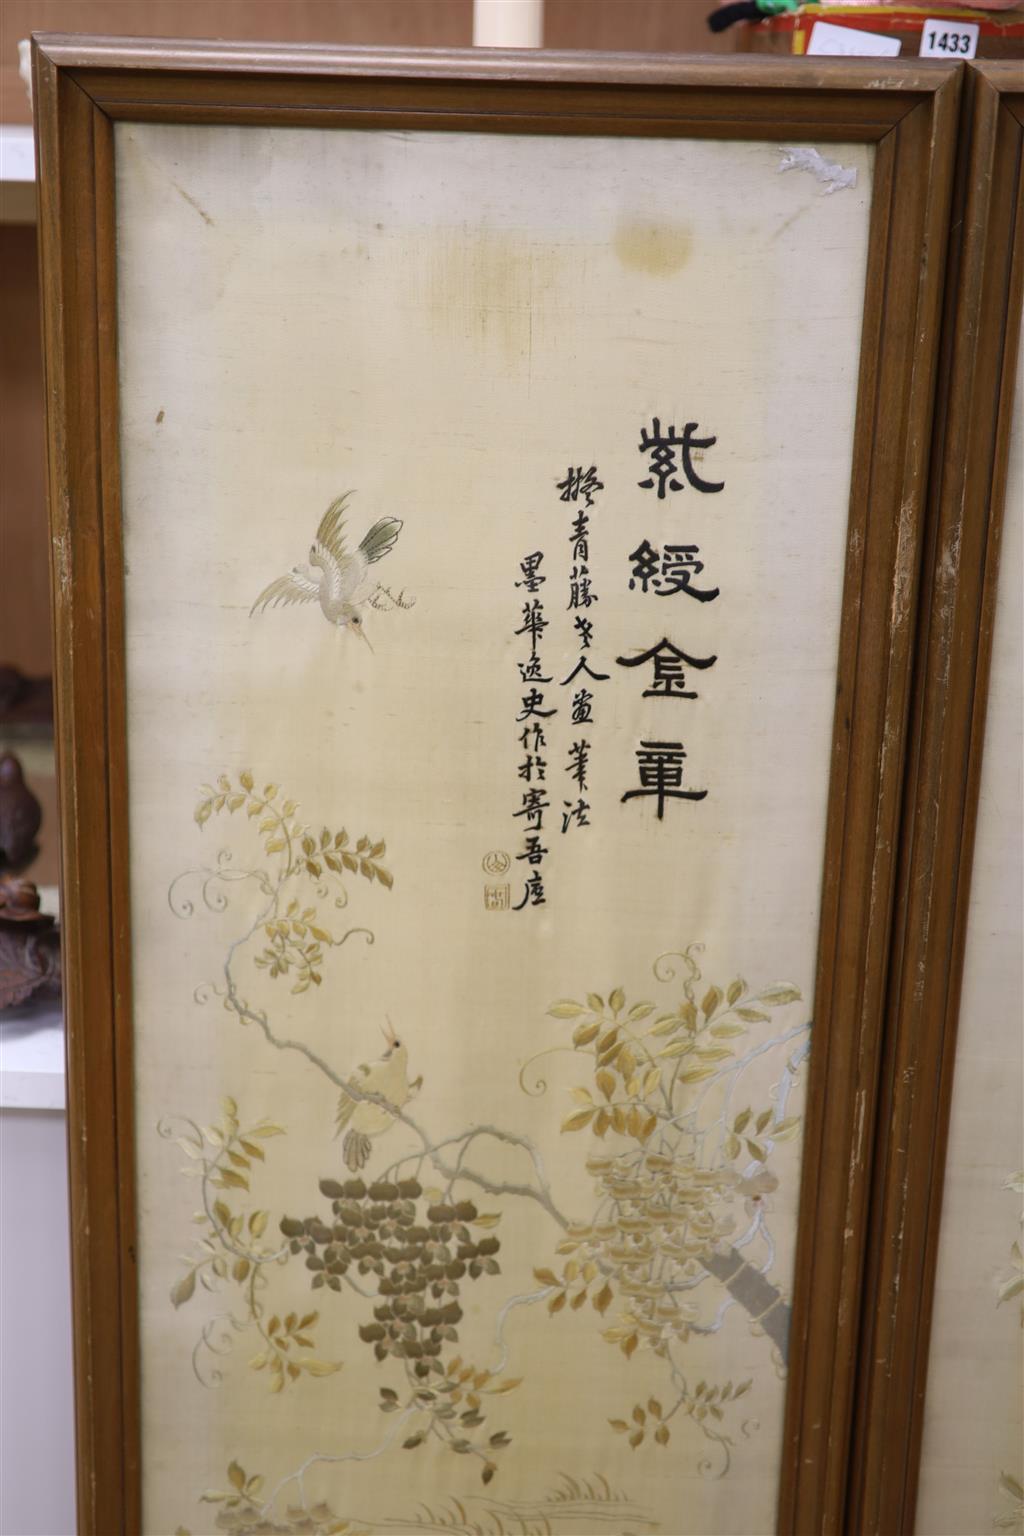 紫綬金章
擬青藤老人畫筆法
墨華逸史作於寄吾廬
1433